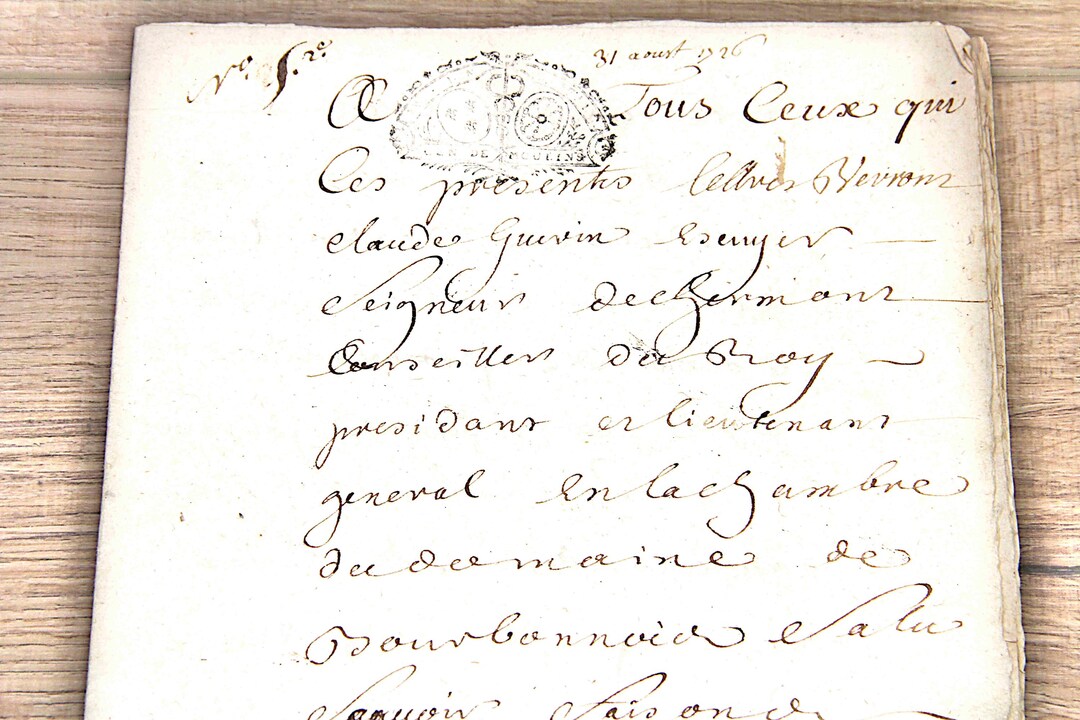 31 aoust 1726
A Tous Ceux qui
Ces presentes lettres Verront
Claude Guerin Escuyer
Seigneur dechermont
Conseiller du Roy
presidant et lieutenant
general En la chambre
du domaine de
Bourbonnois Salut
Scavoir faisons